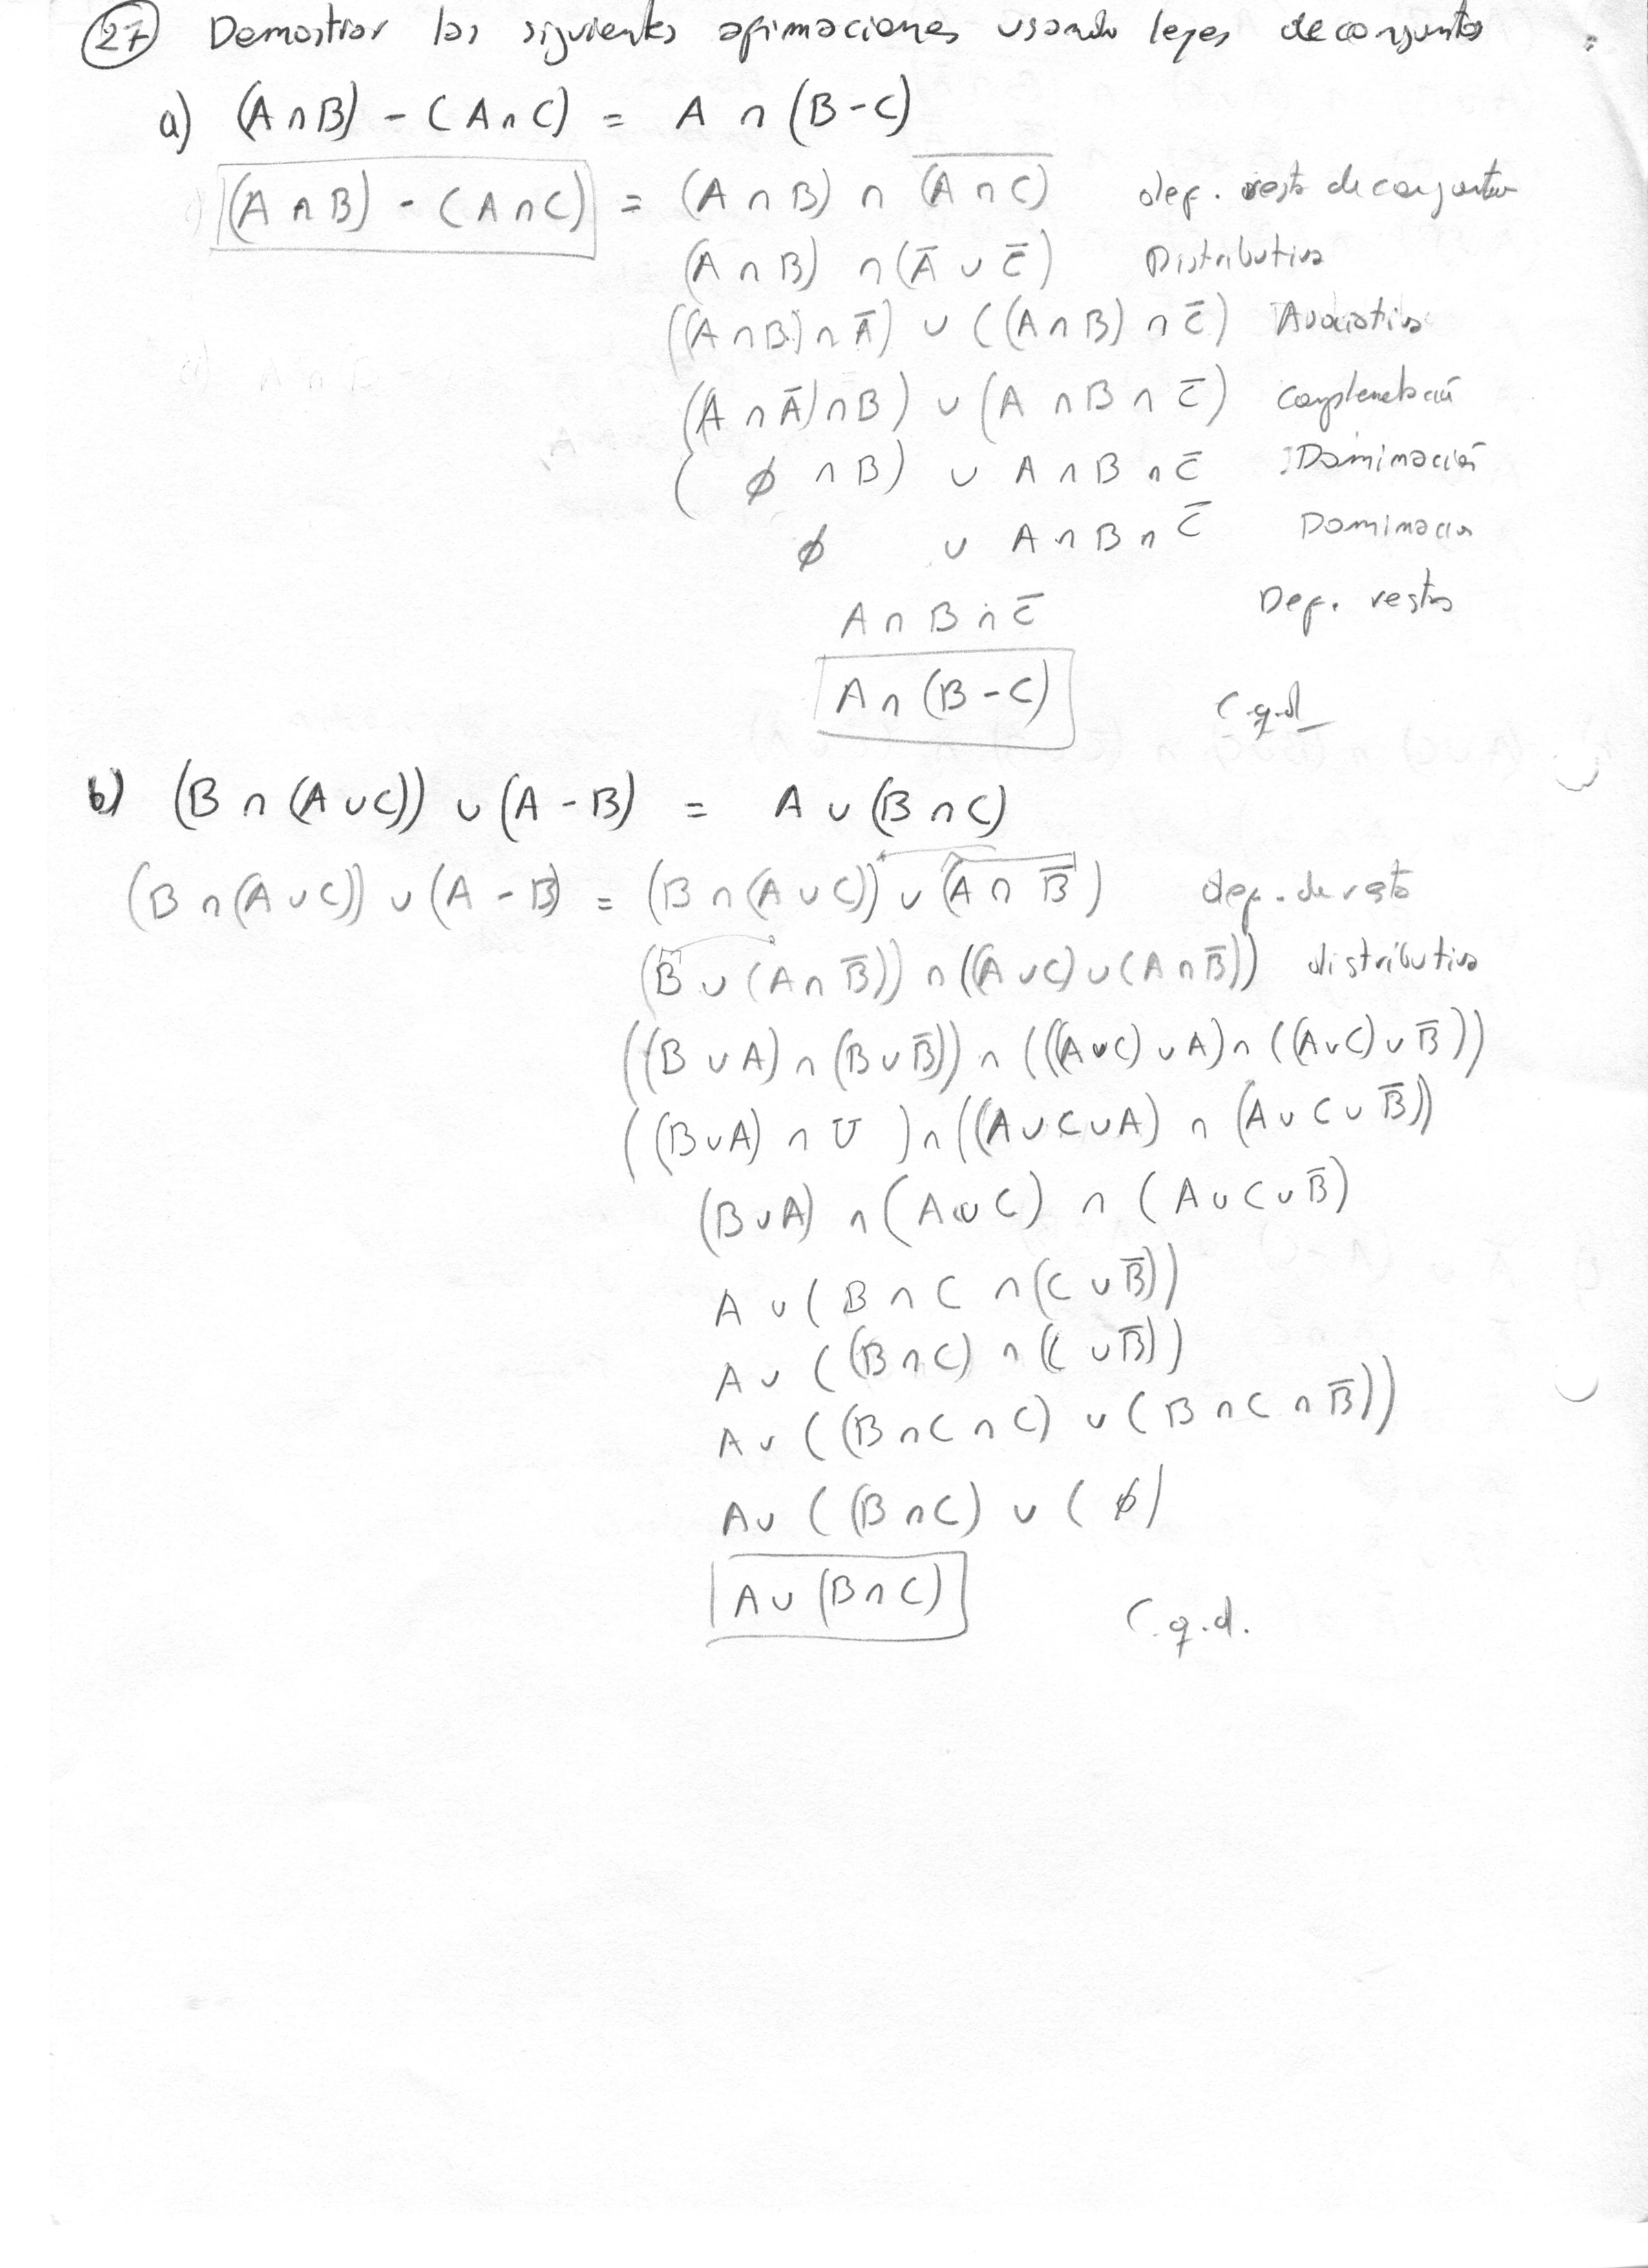 27 Demostrar las siguientes afirmaciones usando leyes de conjuntos :
a) (A ∩ B) - (A ∩ C) = A ∩ (B - C)
(A ∩ B) - (A ∩ C) = (A ∩ B) ∩ \overline{(A ∩ C)} def. resta de conjuntos
(A ∩ B) ∩ (Ā ∪ C̄) Distributiva
((A ∩ B) ∩ Ā) ∪ ((A ∩ B) ∩ C̄) Asociativa
(A ∩ Ā) ∩ B) ∪ (A ∩ B ∩ C̄) Complementación
( ∅ ∩ B) ∪ A ∩ B ∩ C̄ Dominación
∅ ∪ A ∩ B ∩ C̄ Dominacion
A ∩ B ∩ C̄ Def. resta
A ∩ (B - C) C.q.d
b) (B ∩ (A ∪ C)) ∪ (A - B) = A ∪ (B ∩ C)
(B ∩ (A ∪ C)) ∪ (A - B) = (B ∩ (A ∪ C)) ∪ (A ∩ B̄) def. de resta
(B ∪ (A ∩ B̄)) ∩ ((A ∪ C) ∪ (A ∩ B̄)) distributiva
((B ∪ A) ∩ (B ∪ B̄)) ∩ (((A ∪ C) ∪ A) ∩ ((A ∪ C) ∪ B̄))
((B ∪ A) ∩ U ) ∩ ((A ∪ C ∪ A) ∩ (A ∪ C ∪ B̄))
(B ∪ A) ∩ (A ∪ C) ∩ (A ∪ C ∪ B̄)
A ∪ (B ∩ C ∩ (C ∪ B̄))
A ∪ ((B ∩ C) ∩ (C ∪ B̄))
A ∪ ((B ∩ C ∩ C) ∪ (B ∩ C ∩ B̄))
A ∪ ((B ∩ C) ∪ ( ∅)
A ∪ (B ∩ C) C.q.d.